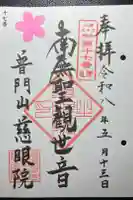 奉拝
令和八年五月十三日
第十七番
南無聖観世音
十七番
普門山慈眼院